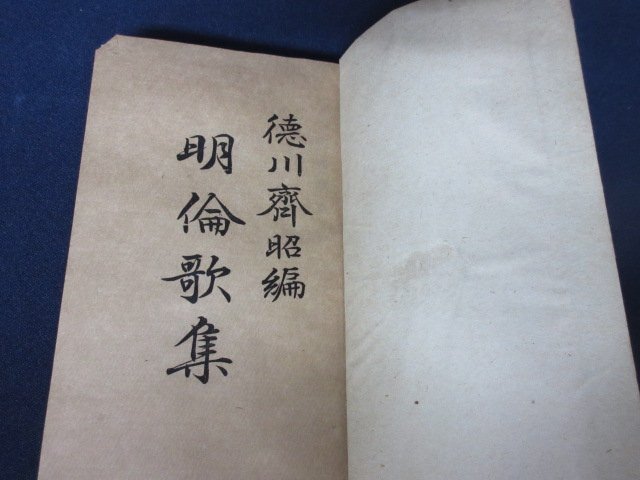 德川齊昭編
明倫歌集